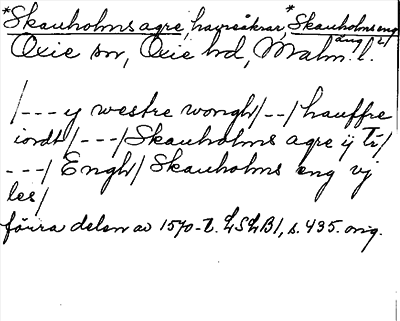 *Skauholms agre, havreåkrar, *Skauholms eng
äng i/
Oxie sn, Oxie hd, Malm. l.
/--- y westre wongh/--/hauffre
iordt/---/Skauholms agre ij Ti/
---/Engh/Skauholms eng vj
les/
förra delen av 1570-t. LSLB1, s. 435. orig.